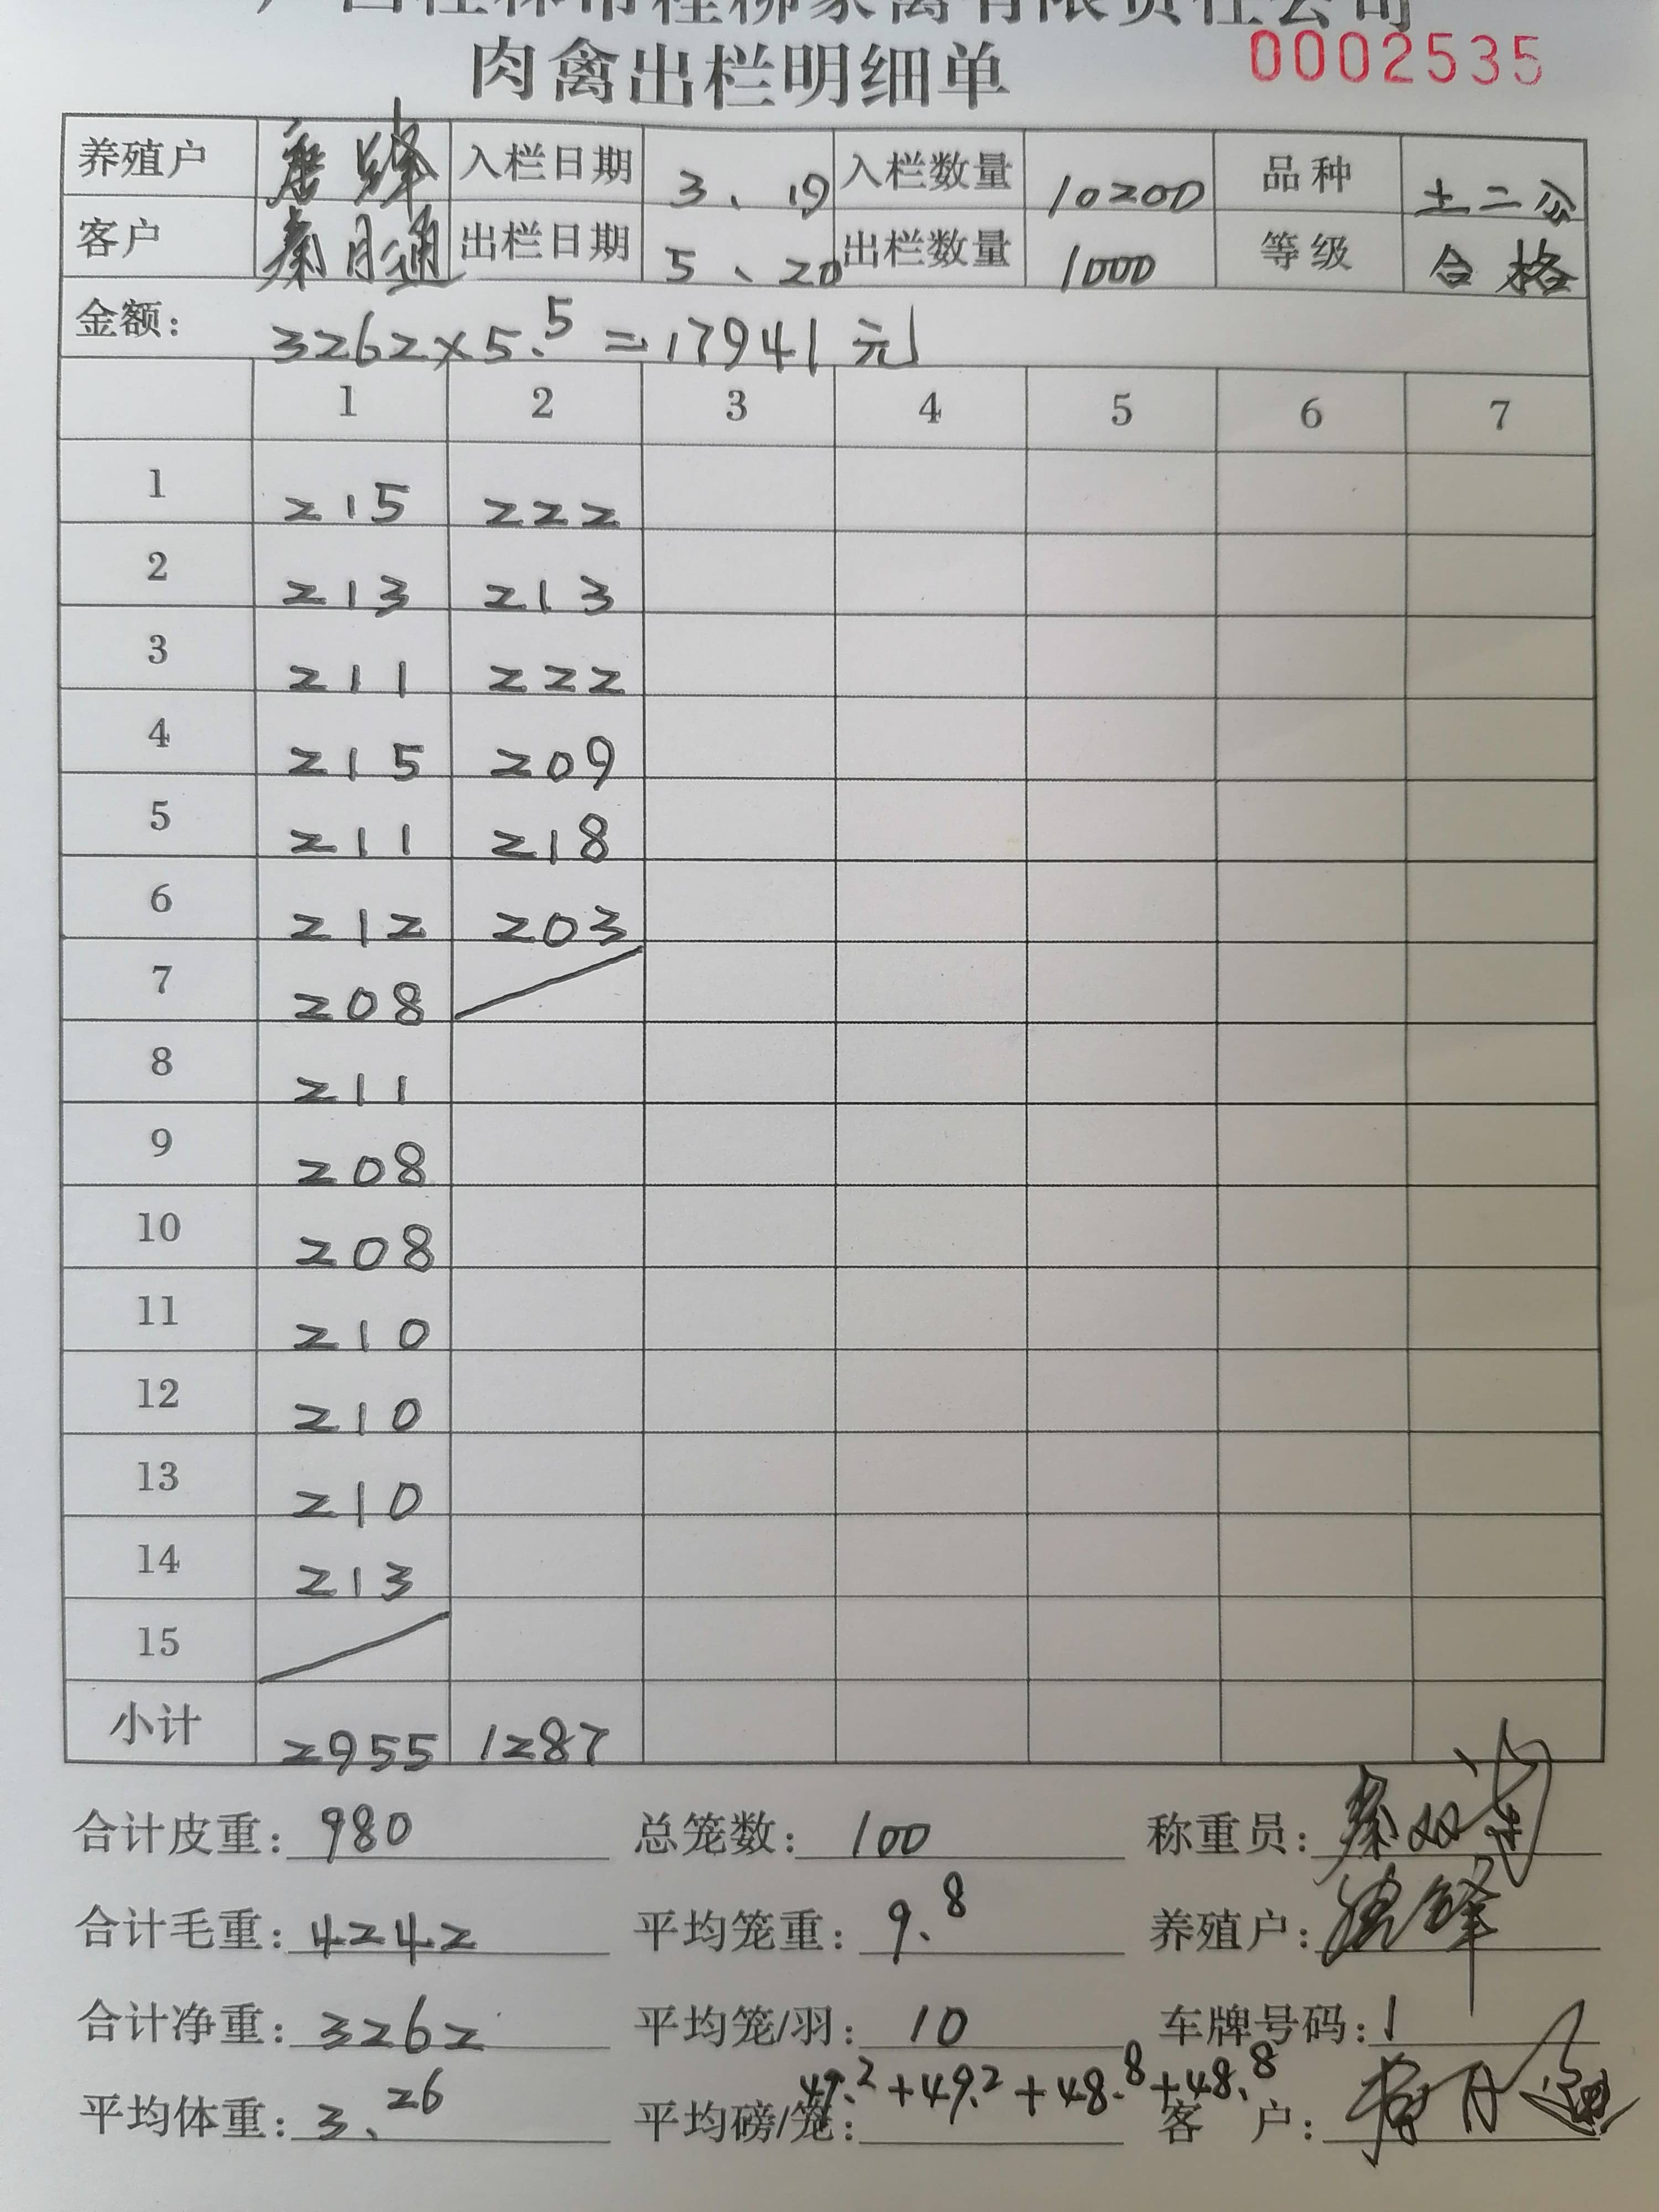 广西桂林市桂柳家禽有限责任公司
肉禽出栏明细单 0002535
养殖户 唐锋 入栏日期 3、19 入栏数量 10200 品种 土二
客户 秦月通 出栏日期 5、20 出栏数量 1000 等级 合格
金额: 3262×5.5=17941元
1 2 3 4 5 6 7
1 215 222
2 213 213
3 211 222
4 215 209
5 211 218
6 212 203
7 208
8 211
9 208
10 208
11 210
12 210
13 210
14 213
15
小计 2955 1287
合计皮重: 980 总笼数: 100 称重员:
合计毛重: 4242 平均笼重: 9.8 养殖户: 唐锋
合计净重: 3262 平均笼/羽: 10 车牌号码: 1
49.2+49.2+48.8+48.8
平均体重: 3.26 平均磅/笼: 客户: 秦月通